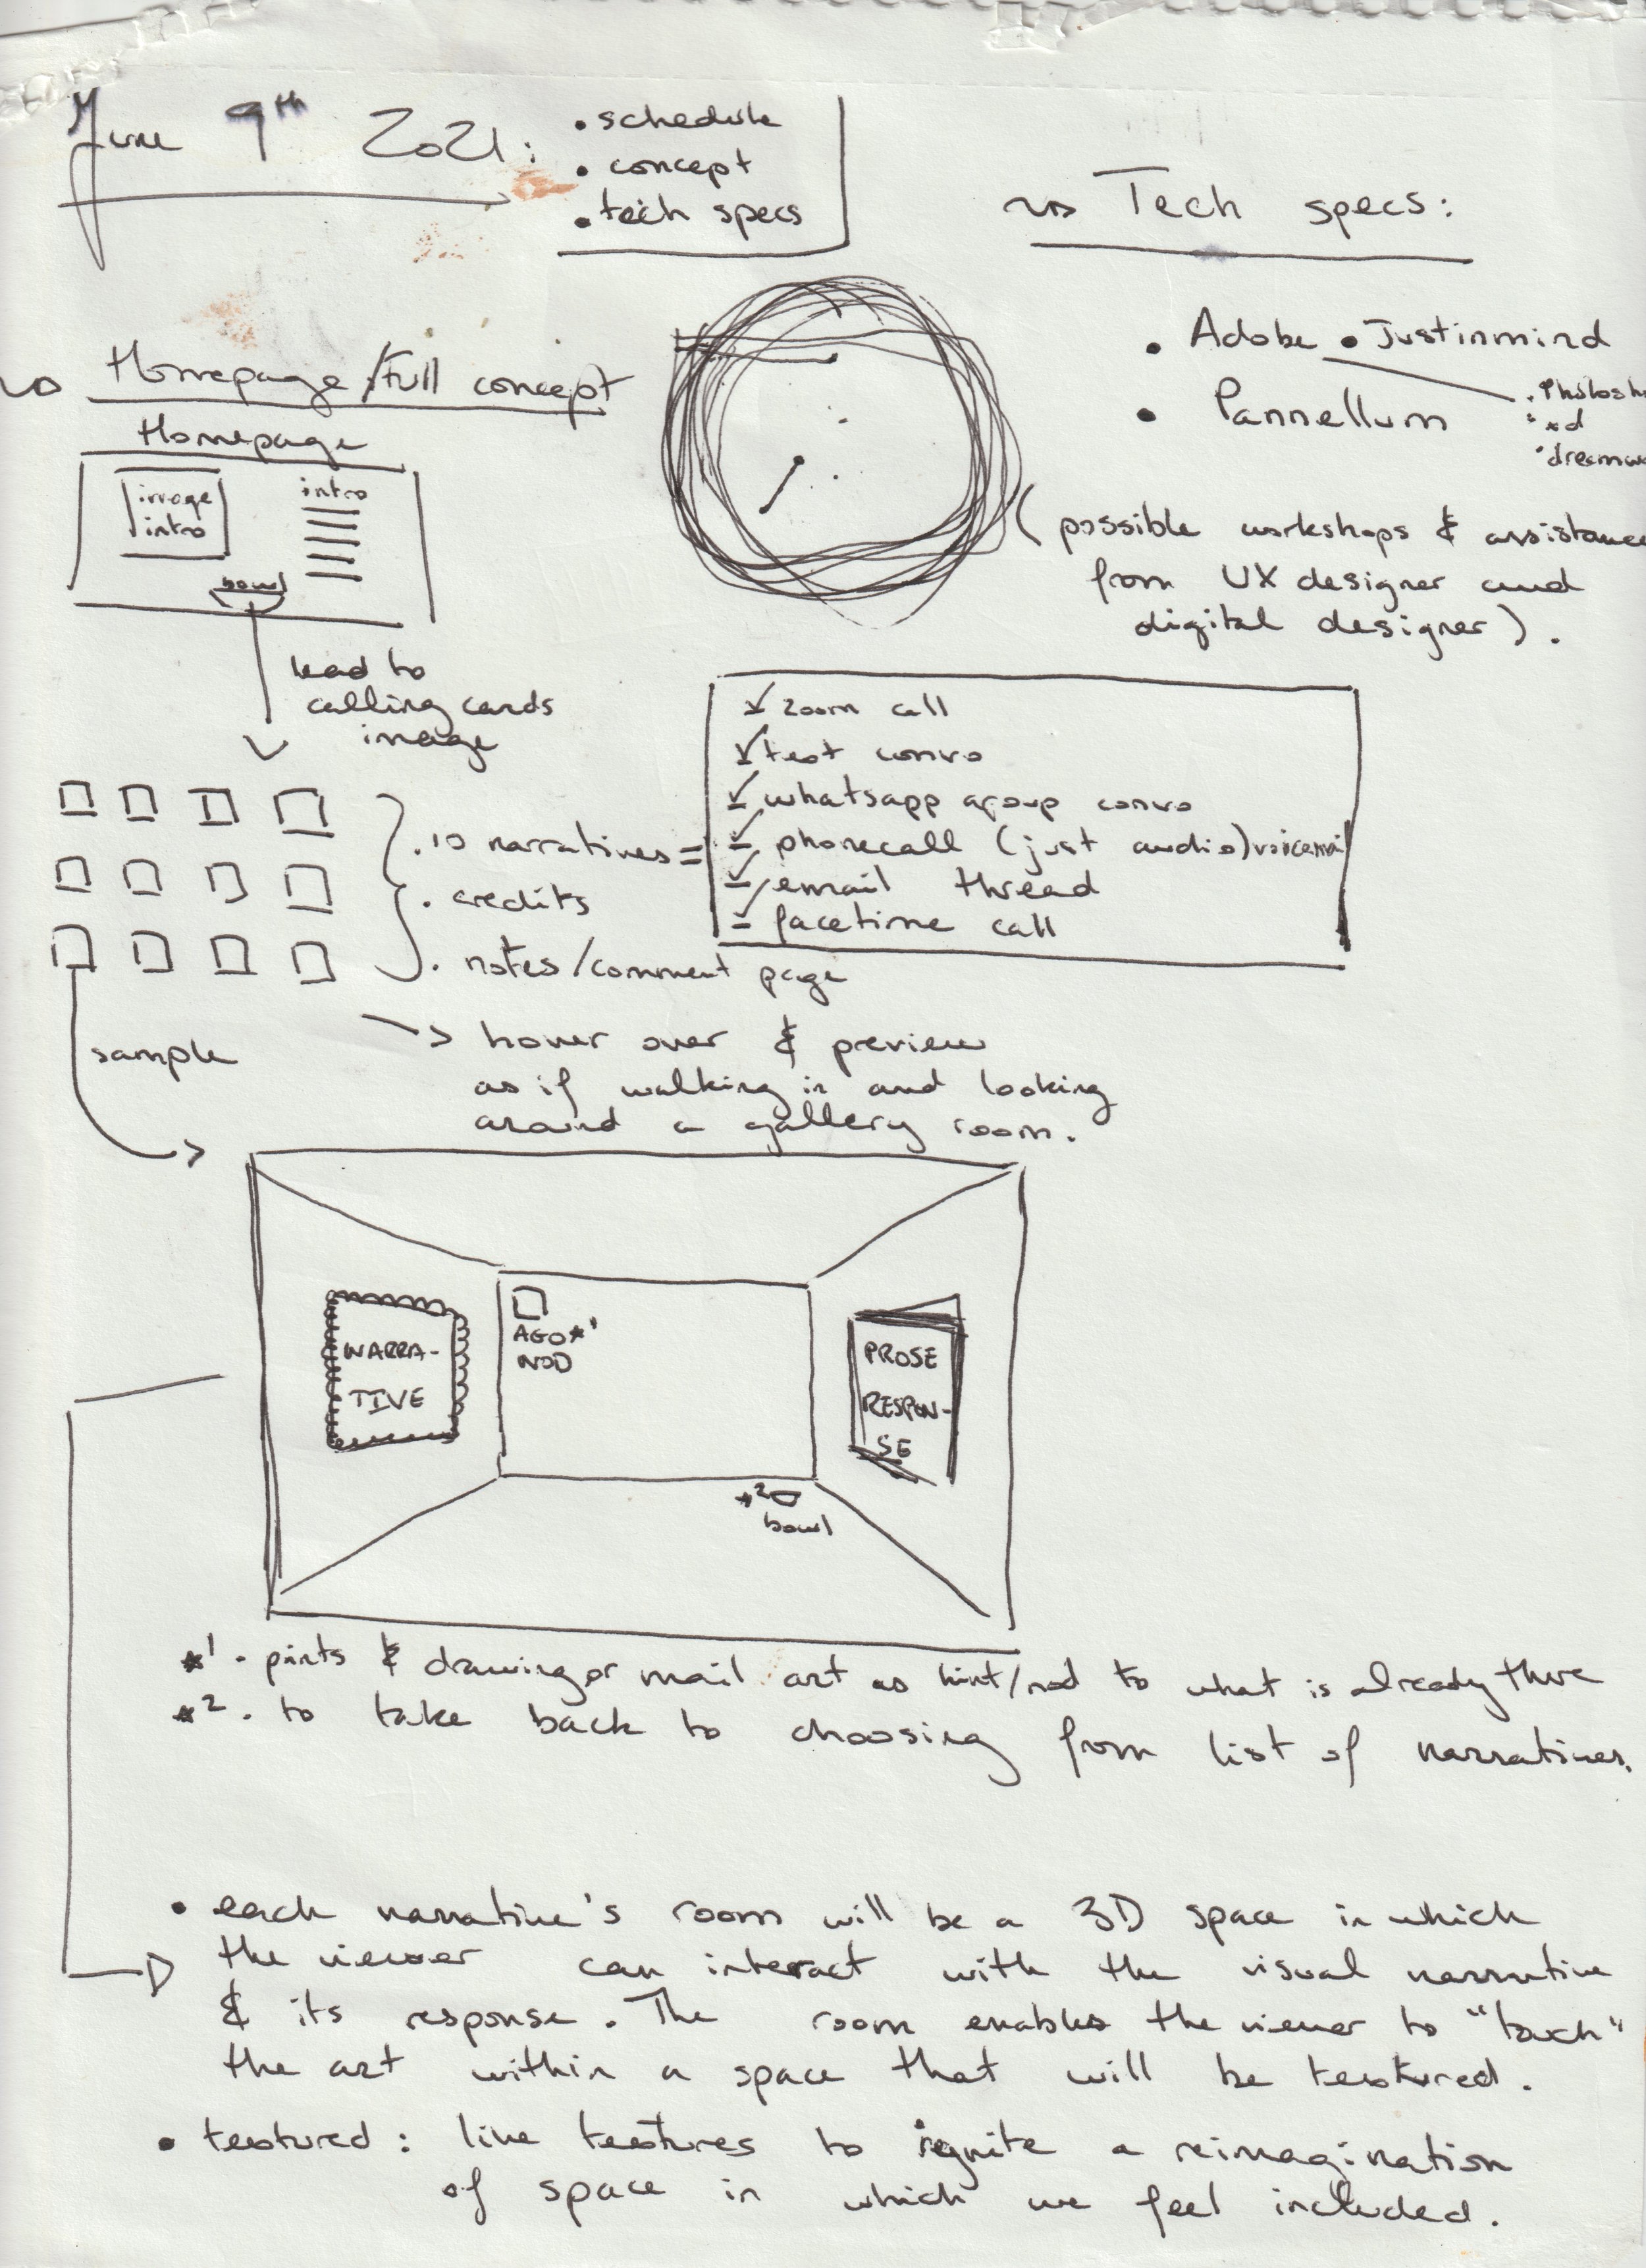 June 9th 2021:
• schedule
• concept
• tech specs
Tech specs:
• Adobe • Justinmind
• Pannellum
• xd
(possible workshops & assistance
from UX designer and
digital designer).
Homepage/Full concept
Homepage
image
intro
intro
bowl
lead to
calling cards
image
. 10 narratives =
. credits
. notes/comment page
zoom call
text convo
whatsapp group convo
phonecall (just audio) voicemail
email thread
facetime call
sample
hover over & preview
as if walking in and looking
around a gallery room.
NARRA-
TIVE
AGO*1
NOD
PROSE
RESPON-
SE
*2
bowl
*1 - prints & drawing or mail art as hint/nod to what is already there
*2 - to take back to choosing from list of narratives.
• each narrative's room will be a 3D space in which
the viewer can interact with the visual narrative
& its response. The room enables the viewer to "touch"
the art within a space that will be textured.
• textured: line textures to ignite a reimagination
of space in which we feel included.